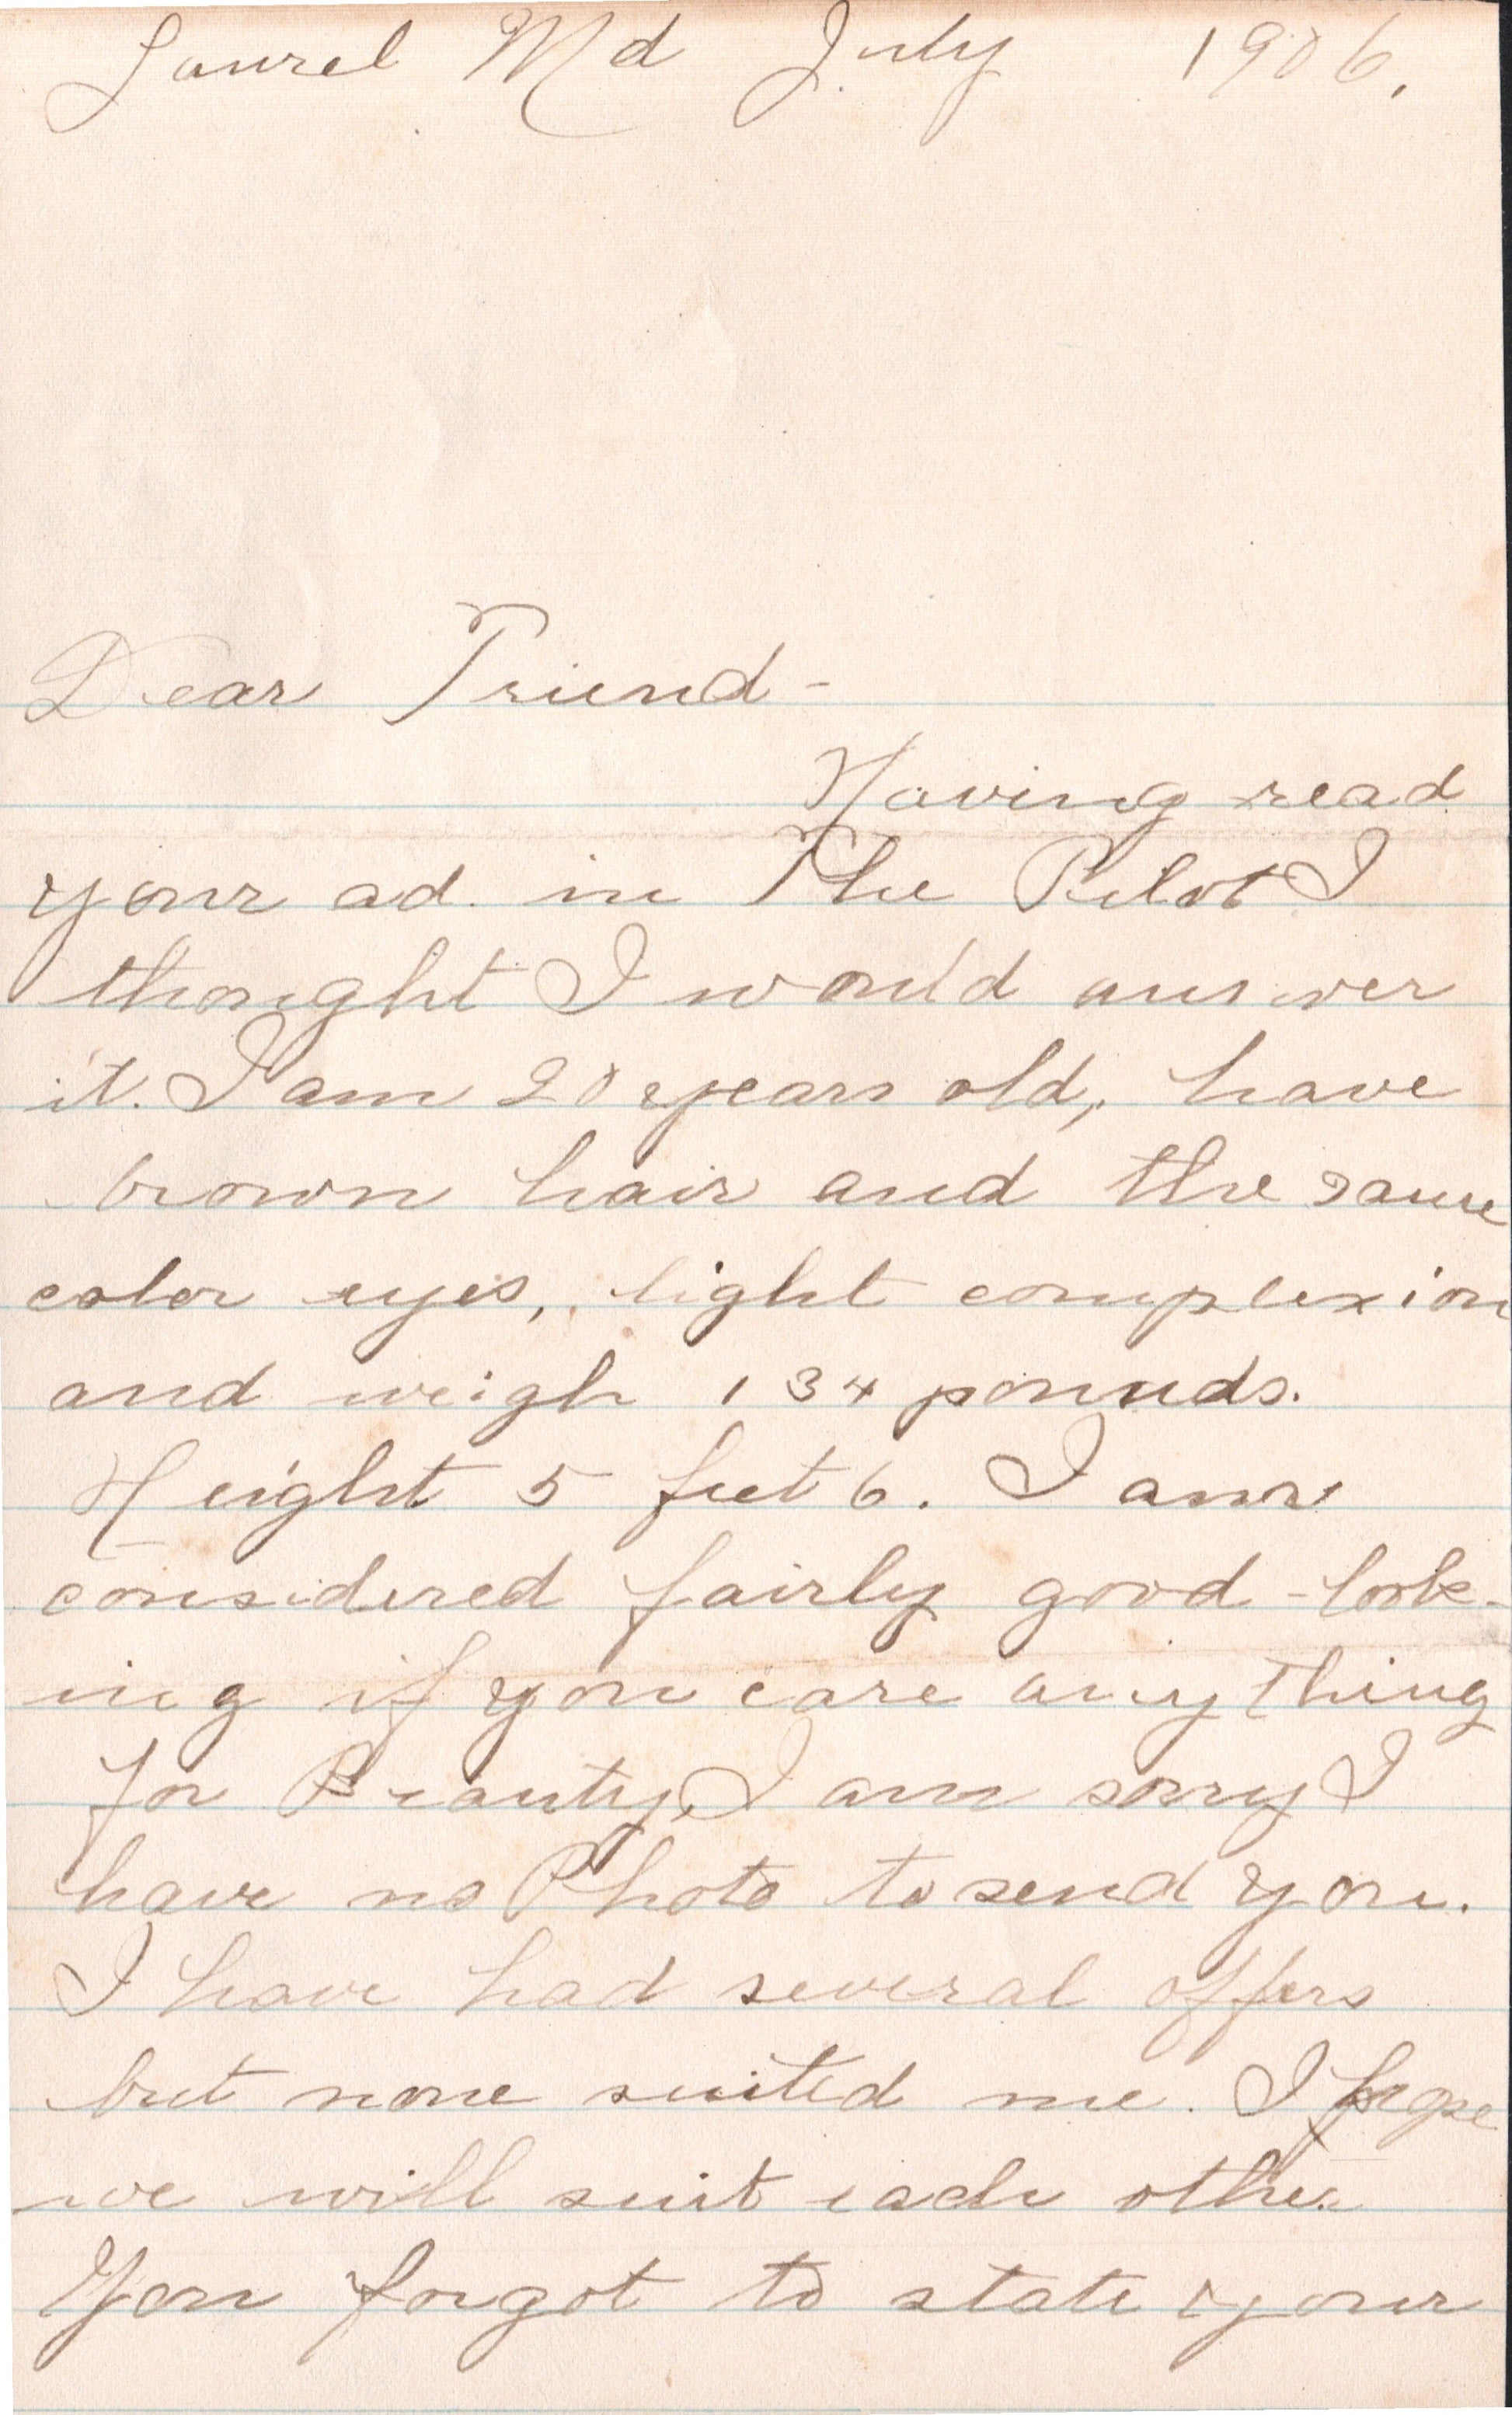 Laurel Md July 1906.
Dear Friend-
Having read
your ad. in The Pilot I
thought I would answer
it. I am 20 years old, have
brown hair and the same
color eyes, light complexion
and weigh 134 pounds.
Height 5 feet 6. I am
considered fairly good-look-
ing if you care anything
for Beauty, I am sorry I
have no Photo to send you.
I have had several offers
but none suited me. I
we will suit each other
You forgot to state your